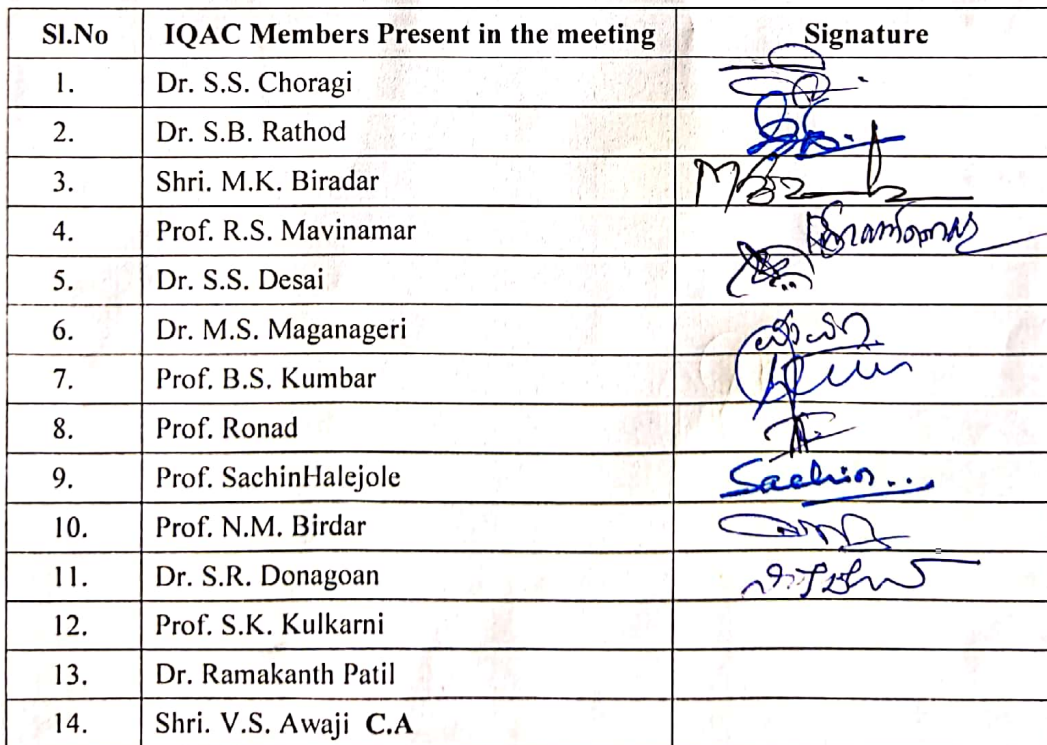 Sl.No IQAC Members Present in the meeting Signature
1. Dr. S.S. Choragi
2. Dr. S.B. Rathod
3. Shri. M.K. Biradar
4. Prof. R.S. Mavinamar
5. Dr. S.S. Desai
6. Dr. M.S. Maganageri
7. Prof. B.S. Kumbar
8. Prof. Ronad
9. Prof. SachinHalejole Sachin...
10. Prof. N.M. Birdar
11. Dr. S.R. Donagoan
12. Prof. S.K. Kulkarni
13. Dr. Ramakanth Patil
14. Shri. V.S. Awaji C.A